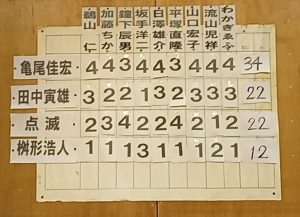 鵜山 仁
加藤ちか
鐘下辰男
坂手洋二
白澤雄介
平塚直隆
山口宏子
流山児祥
わかぎゑふ
亀尾佳宏 4 4 3 4 4 3 4 4 4 34
田中寅雄 3 2 2 1 3 2 3 3 3 22
点滅 2 3 4 2 2 4 2 1 2 22
桝形浩人 1 1 1 3 1 1 1 2 1 12